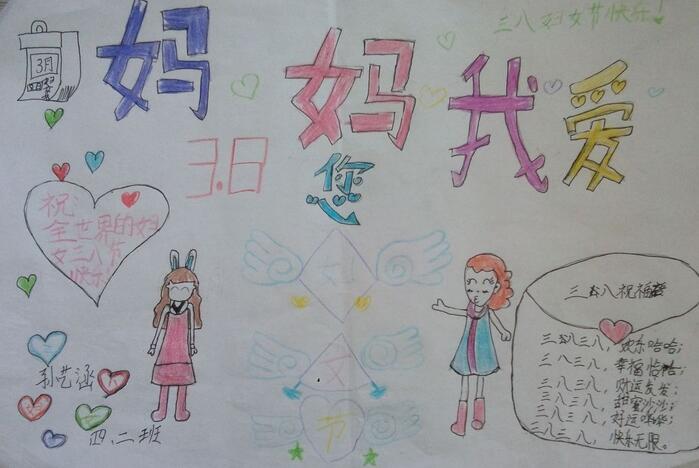 三八妇女节快乐!
3月
妈 妈 我 爱
您
3.8
祝:
全世界的妇
女三八节
快乐!
女
节
孙艺涵
四、二班
三八祝福
三八三八,欢乐哈哈;
三八三八,幸福恰恰;
三八三八,财运发发;
三八三八,甜蜜沙沙;
三八三八,好运哗哗;
三八三八,快乐无限。